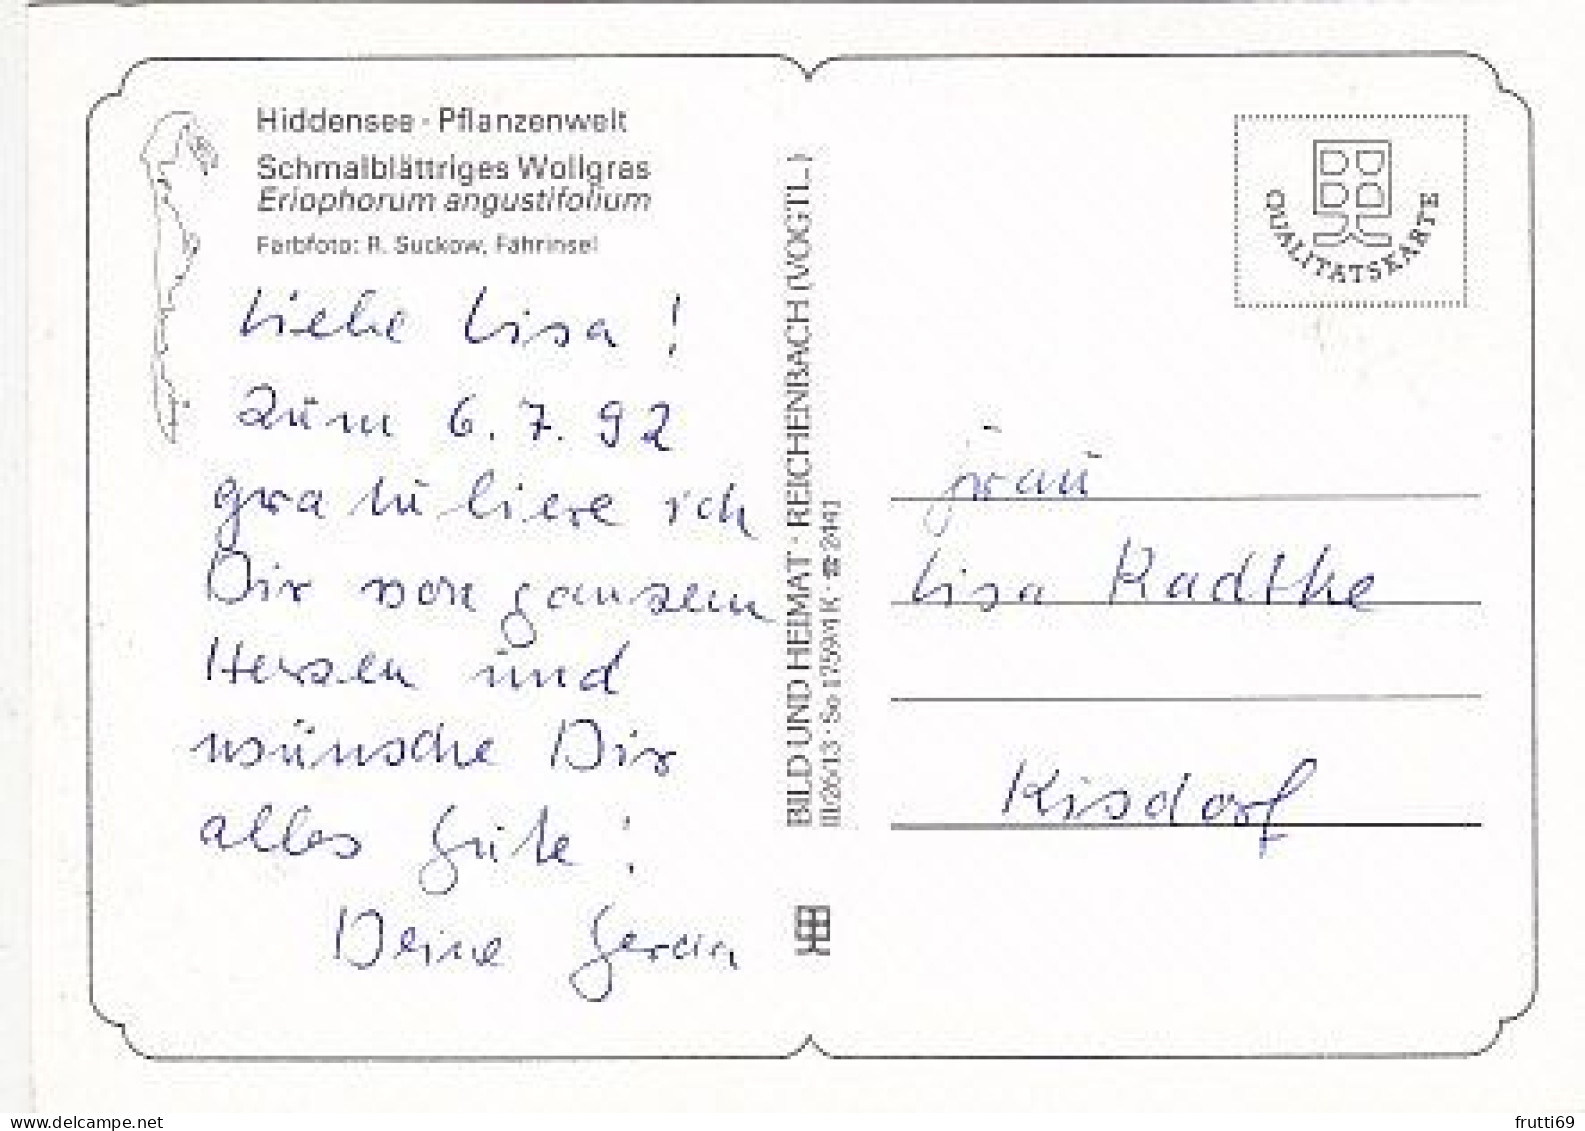 Hiddensee · Pflanzenwelt
Schmalblättriges Wollgras
Eriophorum angustifolium
Farbfoto: R. Suckow, Fährinsel
Liebe Lisa !
Zum 6. 7. 92
gratuliere ich
Dir von ganzem
Herzen und
wünsche Dir
alles Gute !
Deine
BILD UND HEIMAT · REICHENBACH (VOGTL.)
III/26/13 · So 1759/1 K · ☎ 2441
QUALITÄTSKARTE
Frau
Lisa Radthe
Kisdorf
www.delcampe.net
frutti69